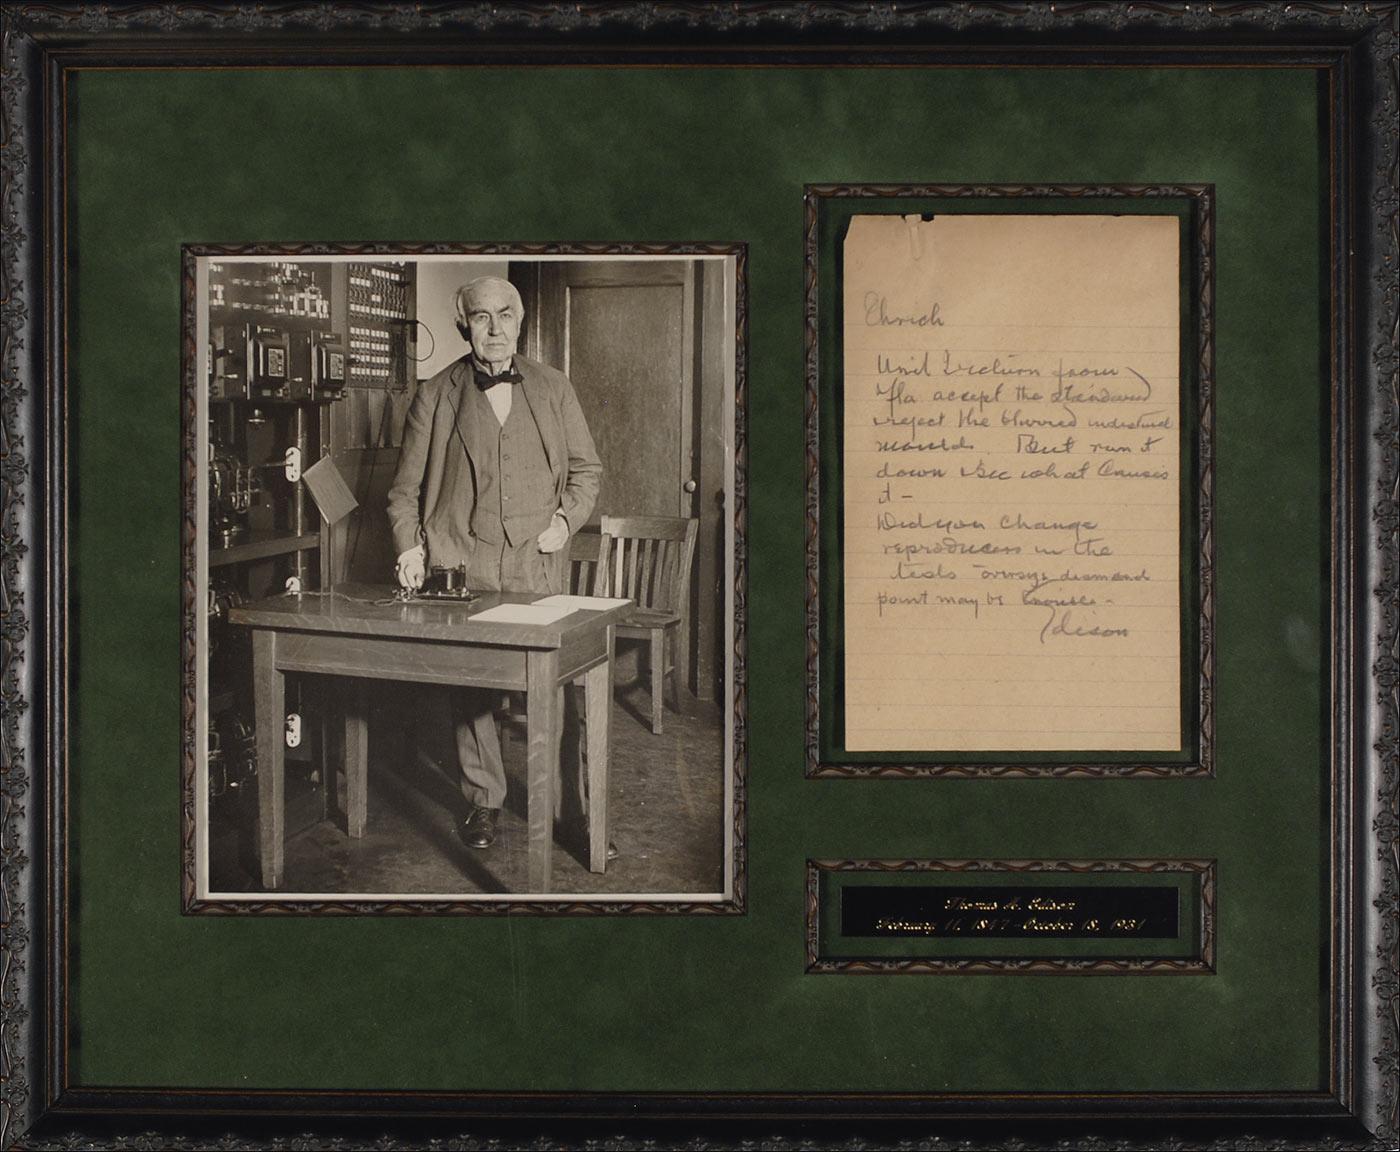 Ehrich
Until I return from
Fla. accept the standard
reject the blurred indistinct
mould. But run it
down & see what causes
it -
Did you change
reproducers in the
tests - oversize diamond
point may be
Edison
Thomas A. Edison
February 11, 1847 - October 18, 1931